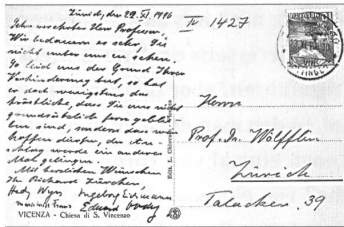 Zürich, den 29. XI. 1996
IV 1427
Sehr verehrter Herr Professor,
Wir bedauern es sehr, Sie
nicht unter uns zu sehen.
So leid uns der Grund Ihrer
Verhinderung tut, so hat
er doch wenigstens das
tröstliche, dass Sie uns nicht
grundsätzlich fern geblie-
ben sind, sondern dass wir
hoffen dürfen, der An-
schlag werde ein anderes
Mal gelingen.
Mit herzlichen Wünschen
Ihr Richard Zürcher,
Hedy Wyss Ingeborg
Eduard
VICENZA - Chiesa di S. Vincenzo
Herrn
Prof. Dr. Wölfflin
Zürich
Talacker 39